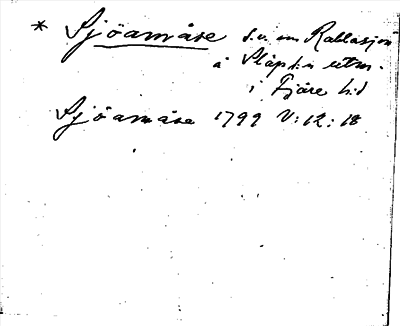 * Sjöamåse s.v. om Rablasjön
å Släps utm.
i Fjäre hd
Sjöamåse 1799 V:12:18